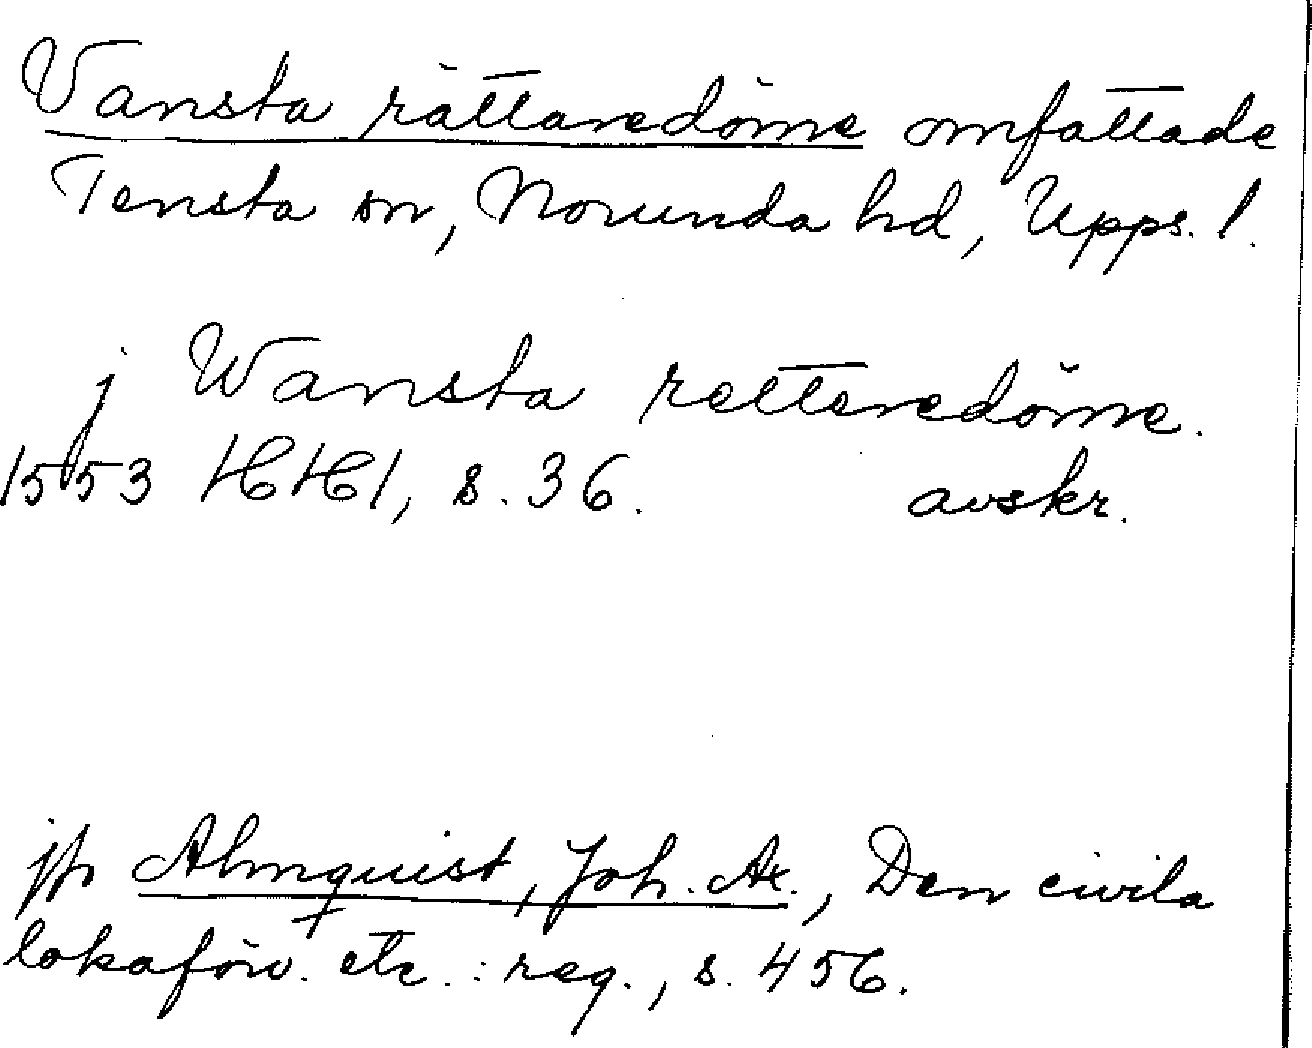 Vansta rättaredöme omfattade
Tensta sn, Norunda hd, Upps. l.
j Wansta retteredöme.
1553 HH1, s. 36. avskr.
jfr Almquist, Joh. Ax., Den civila
lokaförv. etc.: reg., s. 456.